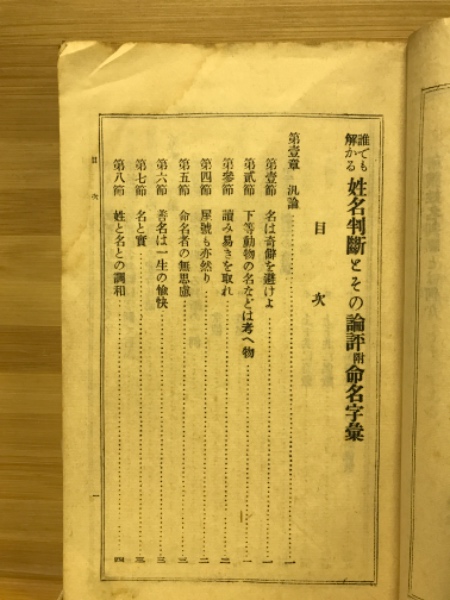 誰でも解かる 姓名判斷とその論評 附 命名字彙
目次
第壹章 汎論……一
第壹節 名は奇僻を避けよ……一
第貳節 下等動物の名などは考へ物……一
第參節 讀み易きを取れ……二
第四節 屋號も亦然り……二
第五節 命名者の無思慮……三
第六節 善名は一生の愉快……三
第七節 名と實……三
第八節 姓と名との調和……四
目次
一